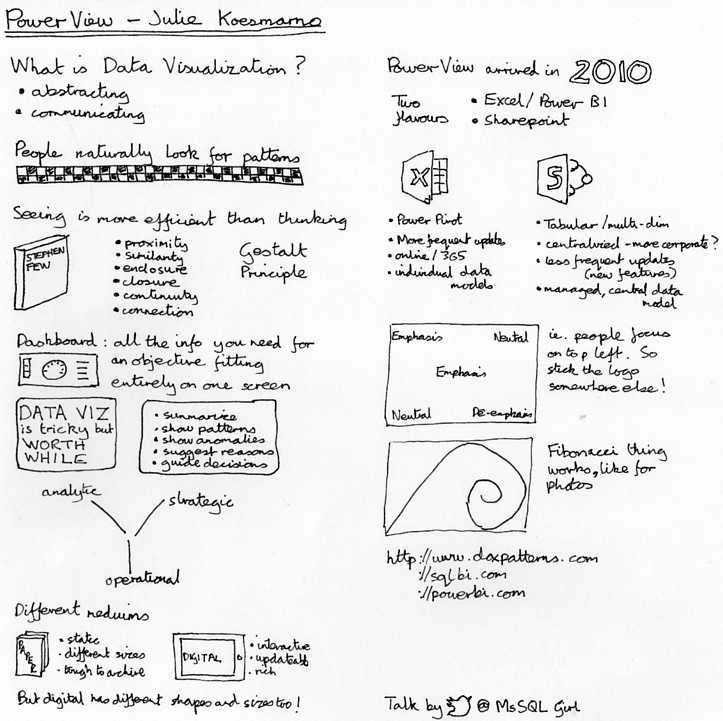 Power View - Julie Koesmarno
What is Data Visualization?
• abstracting
• communicating
People naturally look for patterns
Seeing is more efficient than thinking
STEPHEN
FEW
• proximity
• similarity
• enclosure
• closure
• continuity
• connection
Gestalt
Principle
Dashboard: all the info you need for
an objective fitting
entirely on one screen
DATA VIZ
is tricky but
WORTH
WHILE
• summarize
• show patterns
• show anomalies
• suggest reasons
• guide decisions
analytic
strategic
operational
Different meduims
PAPER
• static
• different sizes
• tough to archive
DIGITAL
• interactive
• updateable
• rich
But digital has different shapes and sizes too!
Power View arrived in 2010
Two
flavours
• Excel/Power BI
• Sharepoint
X
• Power Pivot
• More frequent updates
• online/365
• individual data
models
S
• Tabular/multi-dim
• centralized - more corporate?
• less frequent updates
(new features)
• managed, central data
model
Emphasis
Neutral
Emphasis
Neutral
DE-emphasis
ie. people focus
on top left. So
stick the logo
somewhere else!
Fibonacci thing
works, like for
photos
http://www.daxpatterns.com
://sqlbi.com
://powerbi.com
Talk by @MsSQLGirl